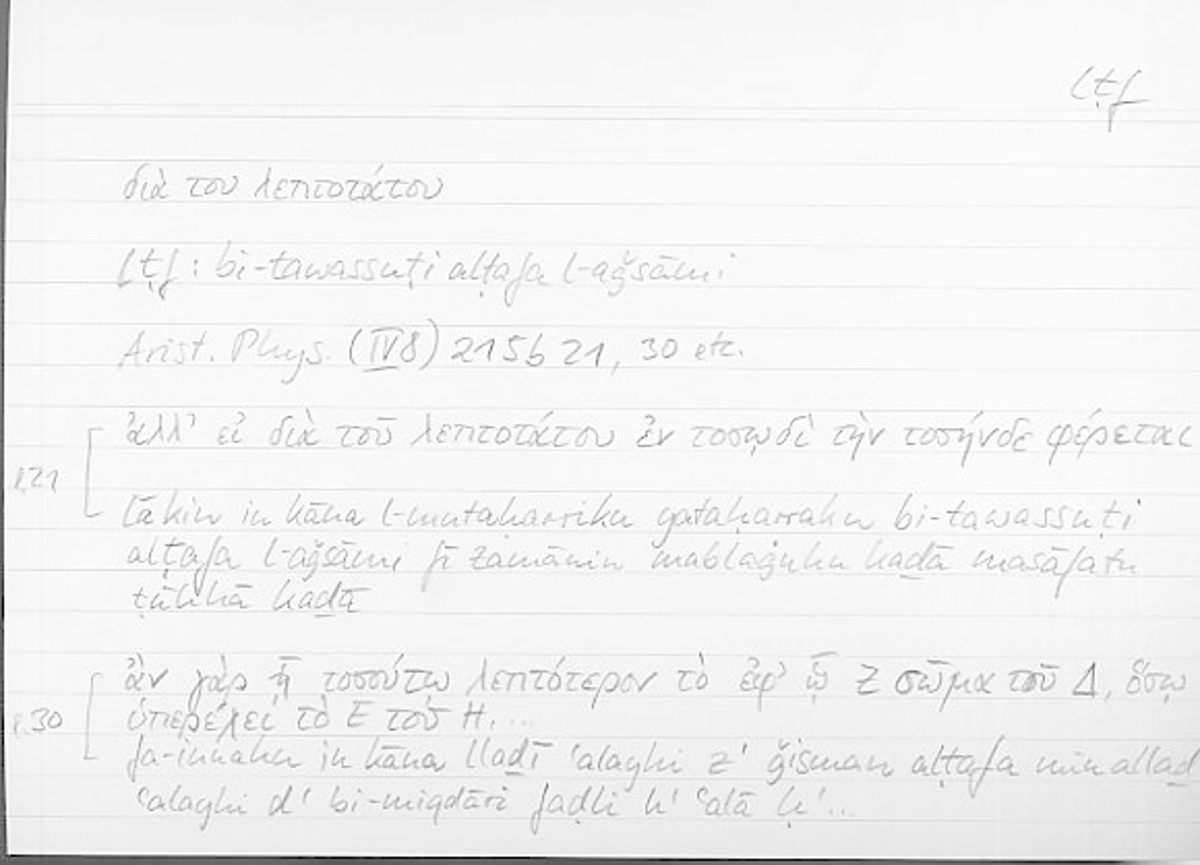 lṭf
διὰ του λεπτοτάτου
lṭf : bi-tawassuṭi alṭafa l-aǧsāmi
Arist. Phys. (IV 8) 215b 21, 30 etc.
ἀλλ' εἰ διὰ τοῦ λεπτοτάτου ἐν τοσῳδὶ τὴν τοσήνδε φέρεται
l.21
lākin in kāna l-mutaḥarriku yataḥarraku bi-tawassuṭi
alṭafa l-aǧsāmi fī zamānin mablaġuhu kaḏā masāfatu
ṭūluhā kaḏā
ἂν γὰρ ᾖ τοσούτῳ λεπτότερον τὸ ἐφ' ᾧ Ζ σῶμα τοῦ Δ, ὅσῳ
l.30
ὑπερέχει τὸ Ε τοῦ Η, ...
fa-innahu in kāna lladī ʿalayhi z' ǧisman alṭafa min allaḏ
ʿalayhi d' bi-miqdāri faḍli h' ʿalā ḥ'...